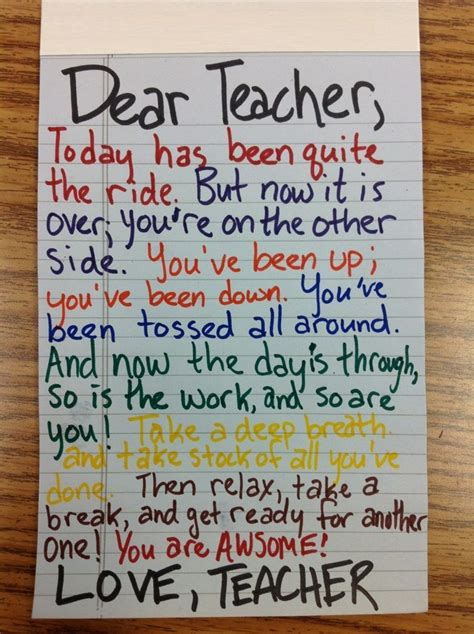 Dear Teacher,
Today has been quite
the ride. But now it is
over; you're on the other
side. You've been up;
you've been down. You've
been tossed all around.
And now the day is through,
so is the work, and so are
you! Take a deep breath
and take stock of all you've
done. Then relax, take a
break, and get ready for another
one! You are AWSOME!
LOVE, TEACHER